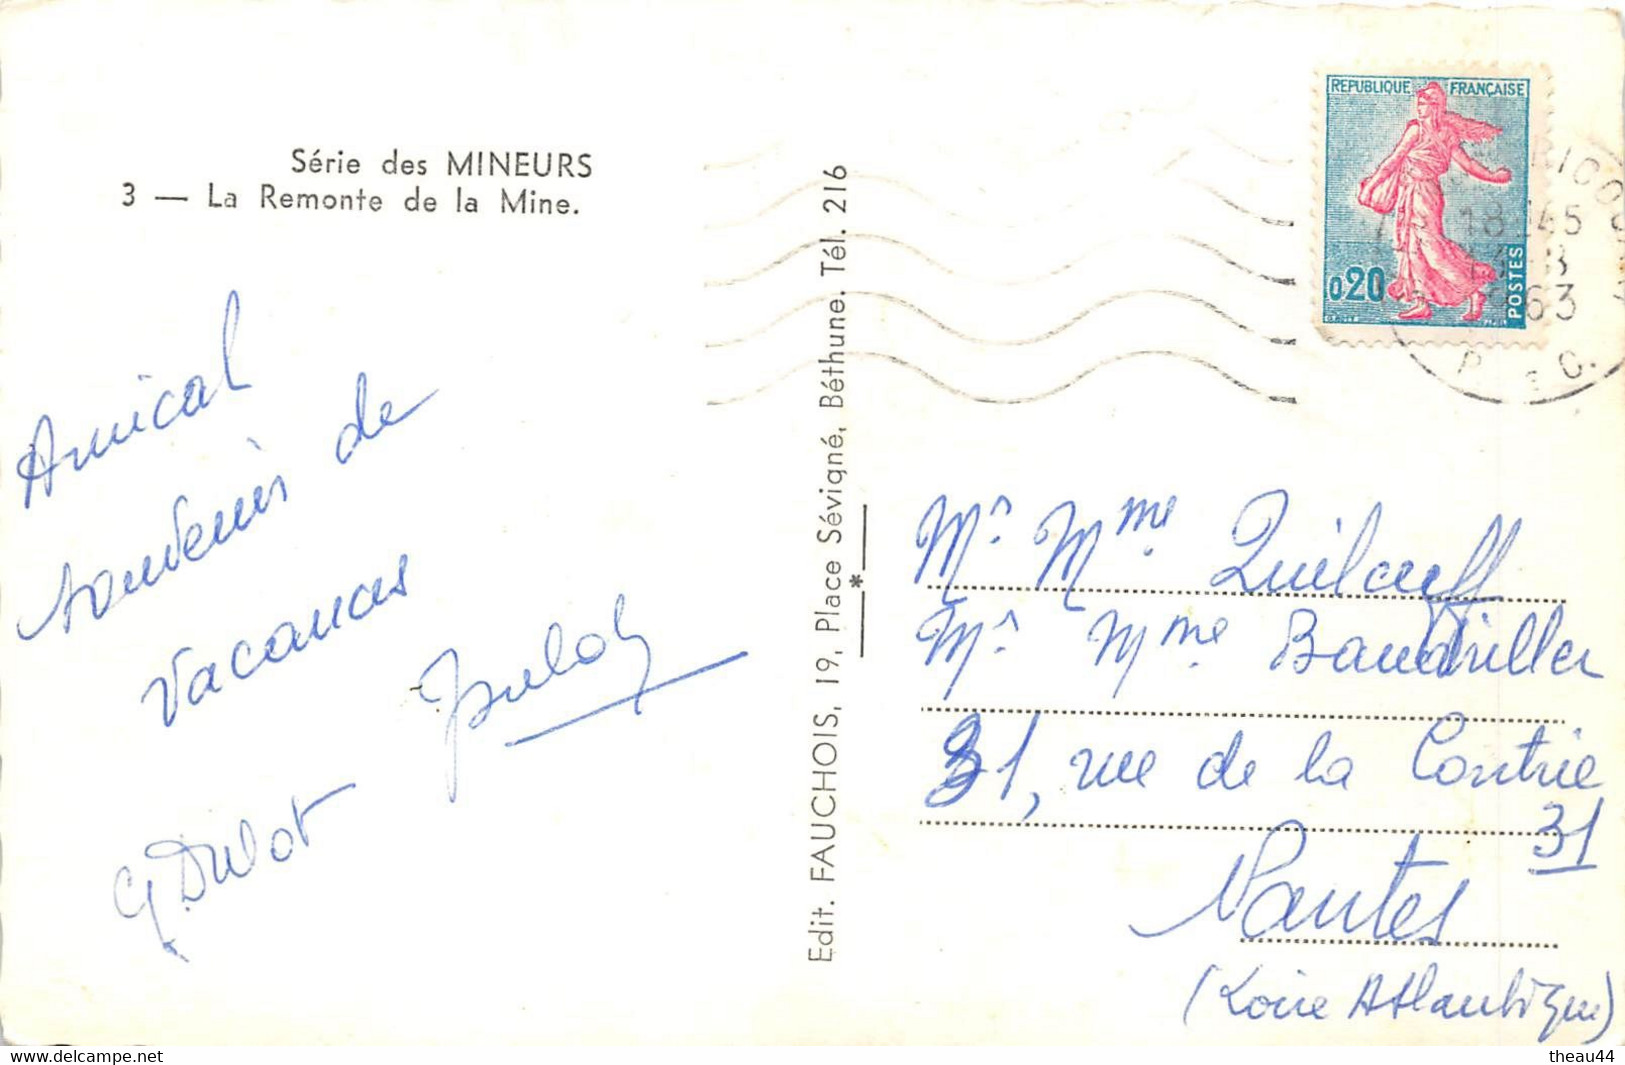 Série des MINEURS
3 — La Remonte de la Mine.
Amical
souvenir de
vacances
G Dulot
Edit. FAUCHOIS, 19, Place Sévigné, Béthune. Tél. 216
REPUBLIQUE FRANÇAISE
0,20
POSTES
18 45
13-8
1963
P. de C.
Mr. Mme. Quilcuff
Mr. Mme Baudriller
31, rue de la Contrie
31
Nantes
(Loire Atlantique)
theau44